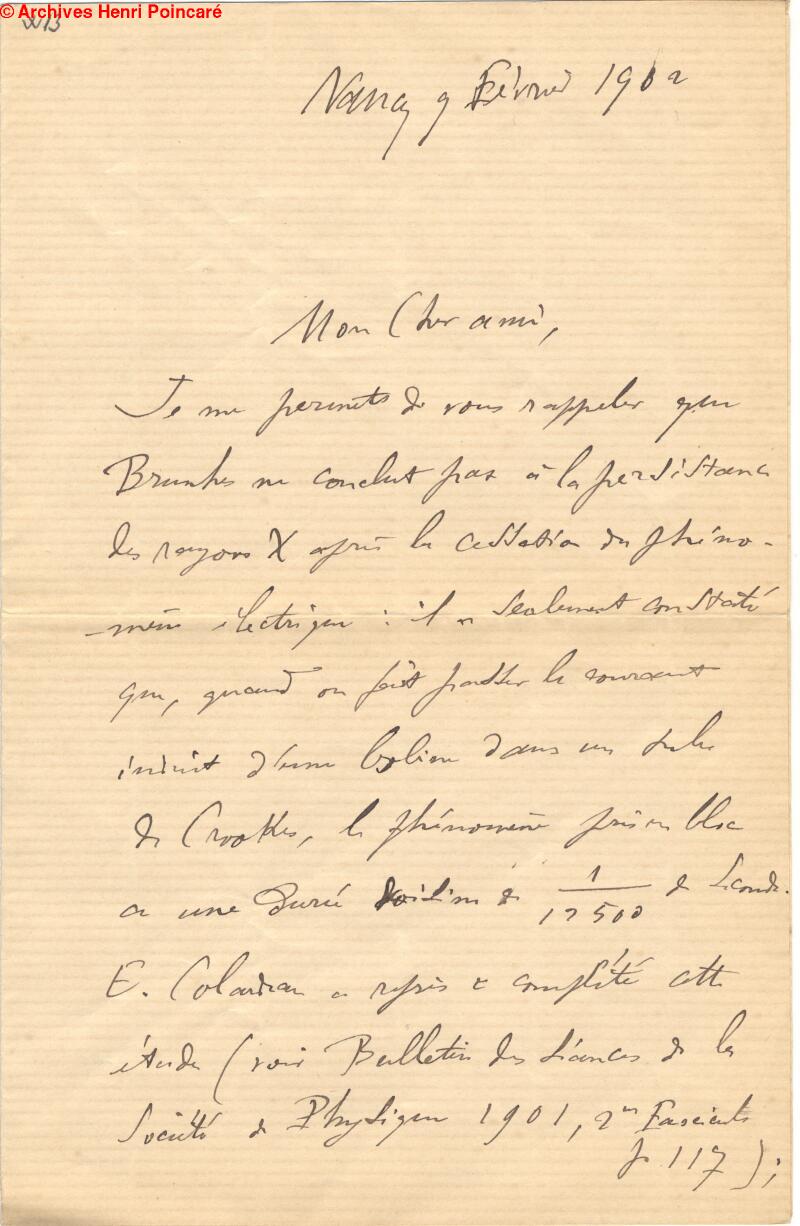 © Archives Henri Poincaré
Nancy 9 Février 1902
Mon Cher ami,
Je me permets de vous rappeler que
Brunhes ne conclut pas à la persistance
des rayons X après la cessation du phéno-
-mène électrique : il a seulement constaté
que, quand on fait passer le courant
induit d'une bobine dans un tube
de Crookes, le phénomène pris en bloc
a une durée voisine de 1/12500 de seconde.
E. Colardeau a repris & complété cette
étude (voir Bulletin des séances de la
Société de Physique 1901, 2me Fascicule
p 117);